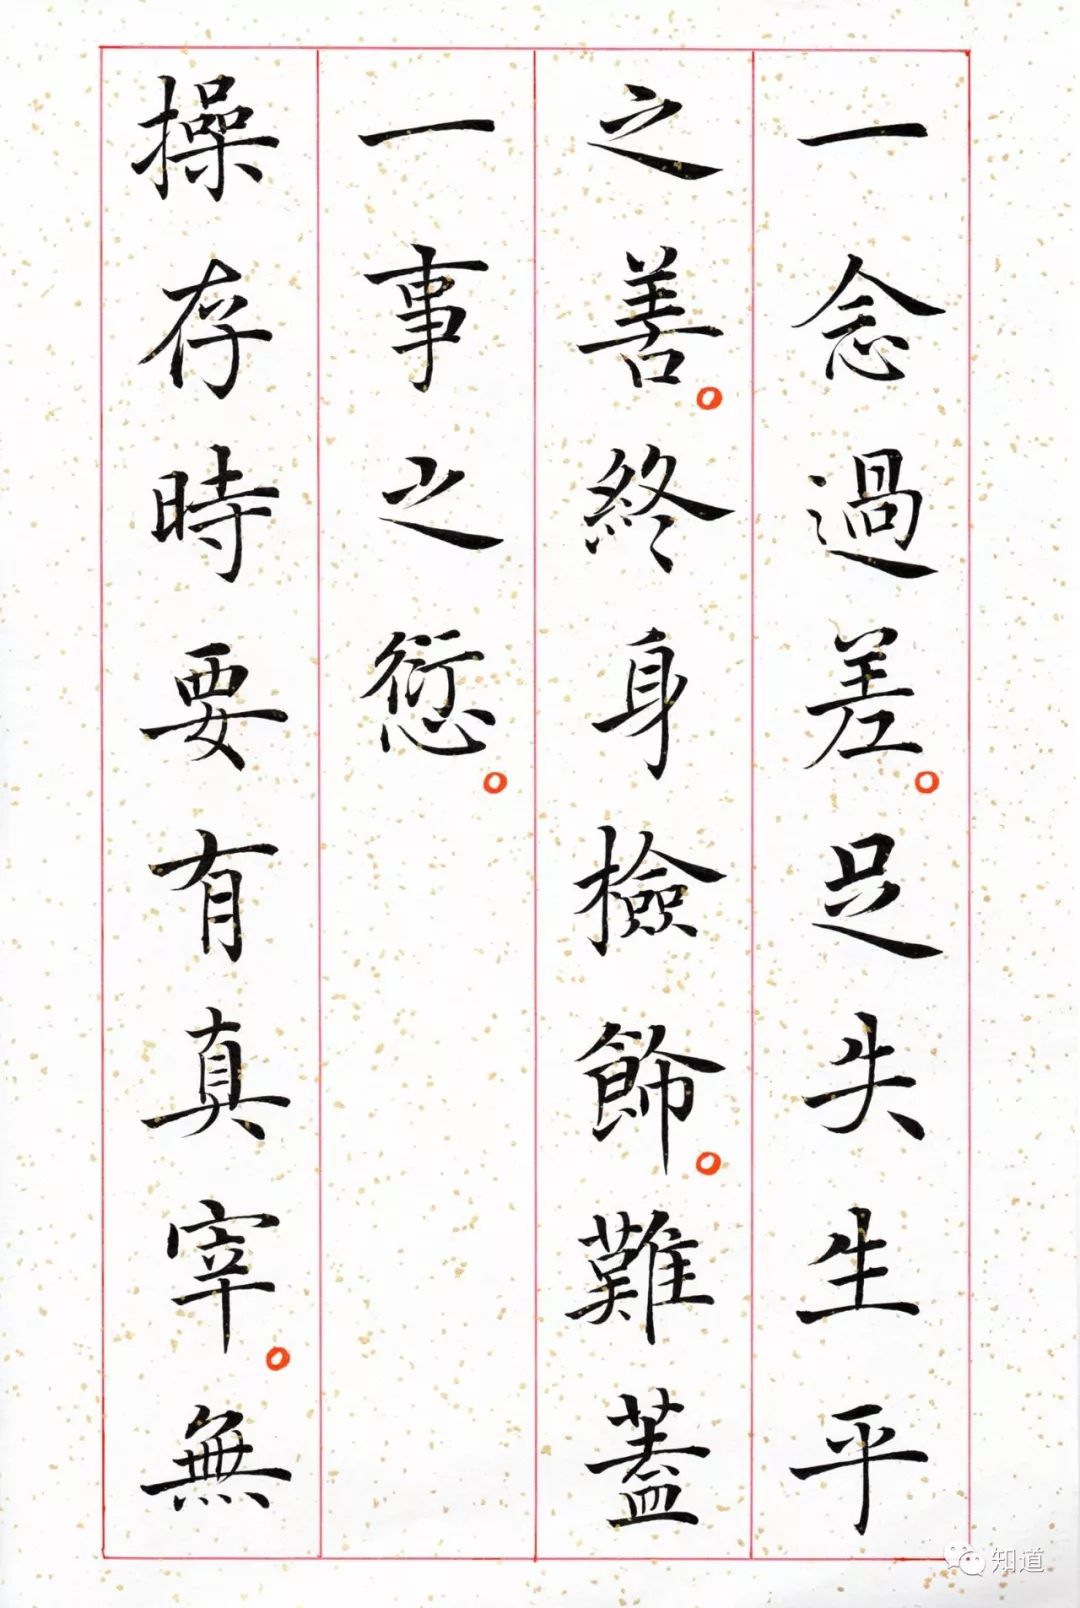 一念過差。足失生平
之善。終身檢飾。難蓋
一事之愆。
操存時要有真宰。無
知道